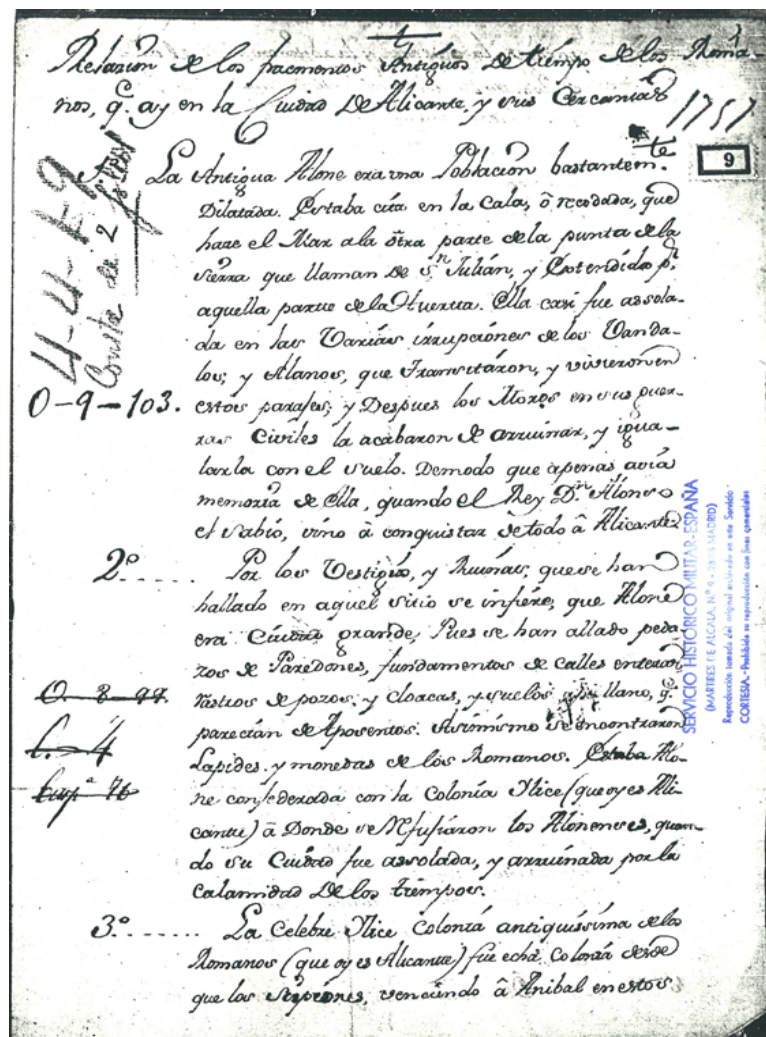 Relacion de los fracmentos Antiguos De tiempo de los Roma-
nos, q.e ay en la Ciudad De Alicante, y sus Cercanias
1757
9
4-4-1-9
Consta de 2
La Antigua Alone era una Poblacion bastantem.te
Dilatada. Estaba cita en la Cala, ô recodada, que
haze el Mar a la ôtra parte de la punta de la
sierra que llaman De S.n Julián, y Extendida p.r
aquella parte de la Huerta. Ella casi fue assola-
da en las Varias irrupciones de los Vanda-
los, y Alanos, que Transitáron, y vivieron en
0-9-103.
estos parajes; y Despues los Moros en sus guer-
ras Civiles la acabaron de arruinar, y igua-
larla con el suelo. Demodo que apenas avia
memoria de Ella, quando el Rey D.n Alonso
el Sabio, vino â conquistar de todo â Alicante.
2.º ......
Por los Vestigios, y Ruinas, que se han
hallado en aquel sitio se infiére, que Alone
era Ciudad grande, Pues se han allado peda-
zos de Paredones, fundamentos de calles enteras
0-8-99.
rastros de pozos, y cloacas, y suelos llano, q.e
parecian de Aposentos. Asimismo se encontraron
C.-4
Lapides, y monedas de los Romanos. Estaba Alo-
ne confederada con la Colonia Ylice (que oy es Ali-
76
cante) â Donde se Refujiaron los Alonenses, quan-
do su Ciudad fue assolada, y arruinada por la
calamidad De los tiempos.
3.º ........
La Celebre Ylice Colonia antiquíssima de los
Romanos (que oy es Alicante) fue echa Colonia desde
que los Scipiones, venciendo â Anibal en estos
SERVICIO HISTORICO MILITAR-ESPAÑA
(MARTIRES DE ALCALA, N.º 9 - 28015 MADRID)
Reproducción tomada del original archivado en este Servicio
CORTESIA.- Prohibida su reproducción con fines comerciales